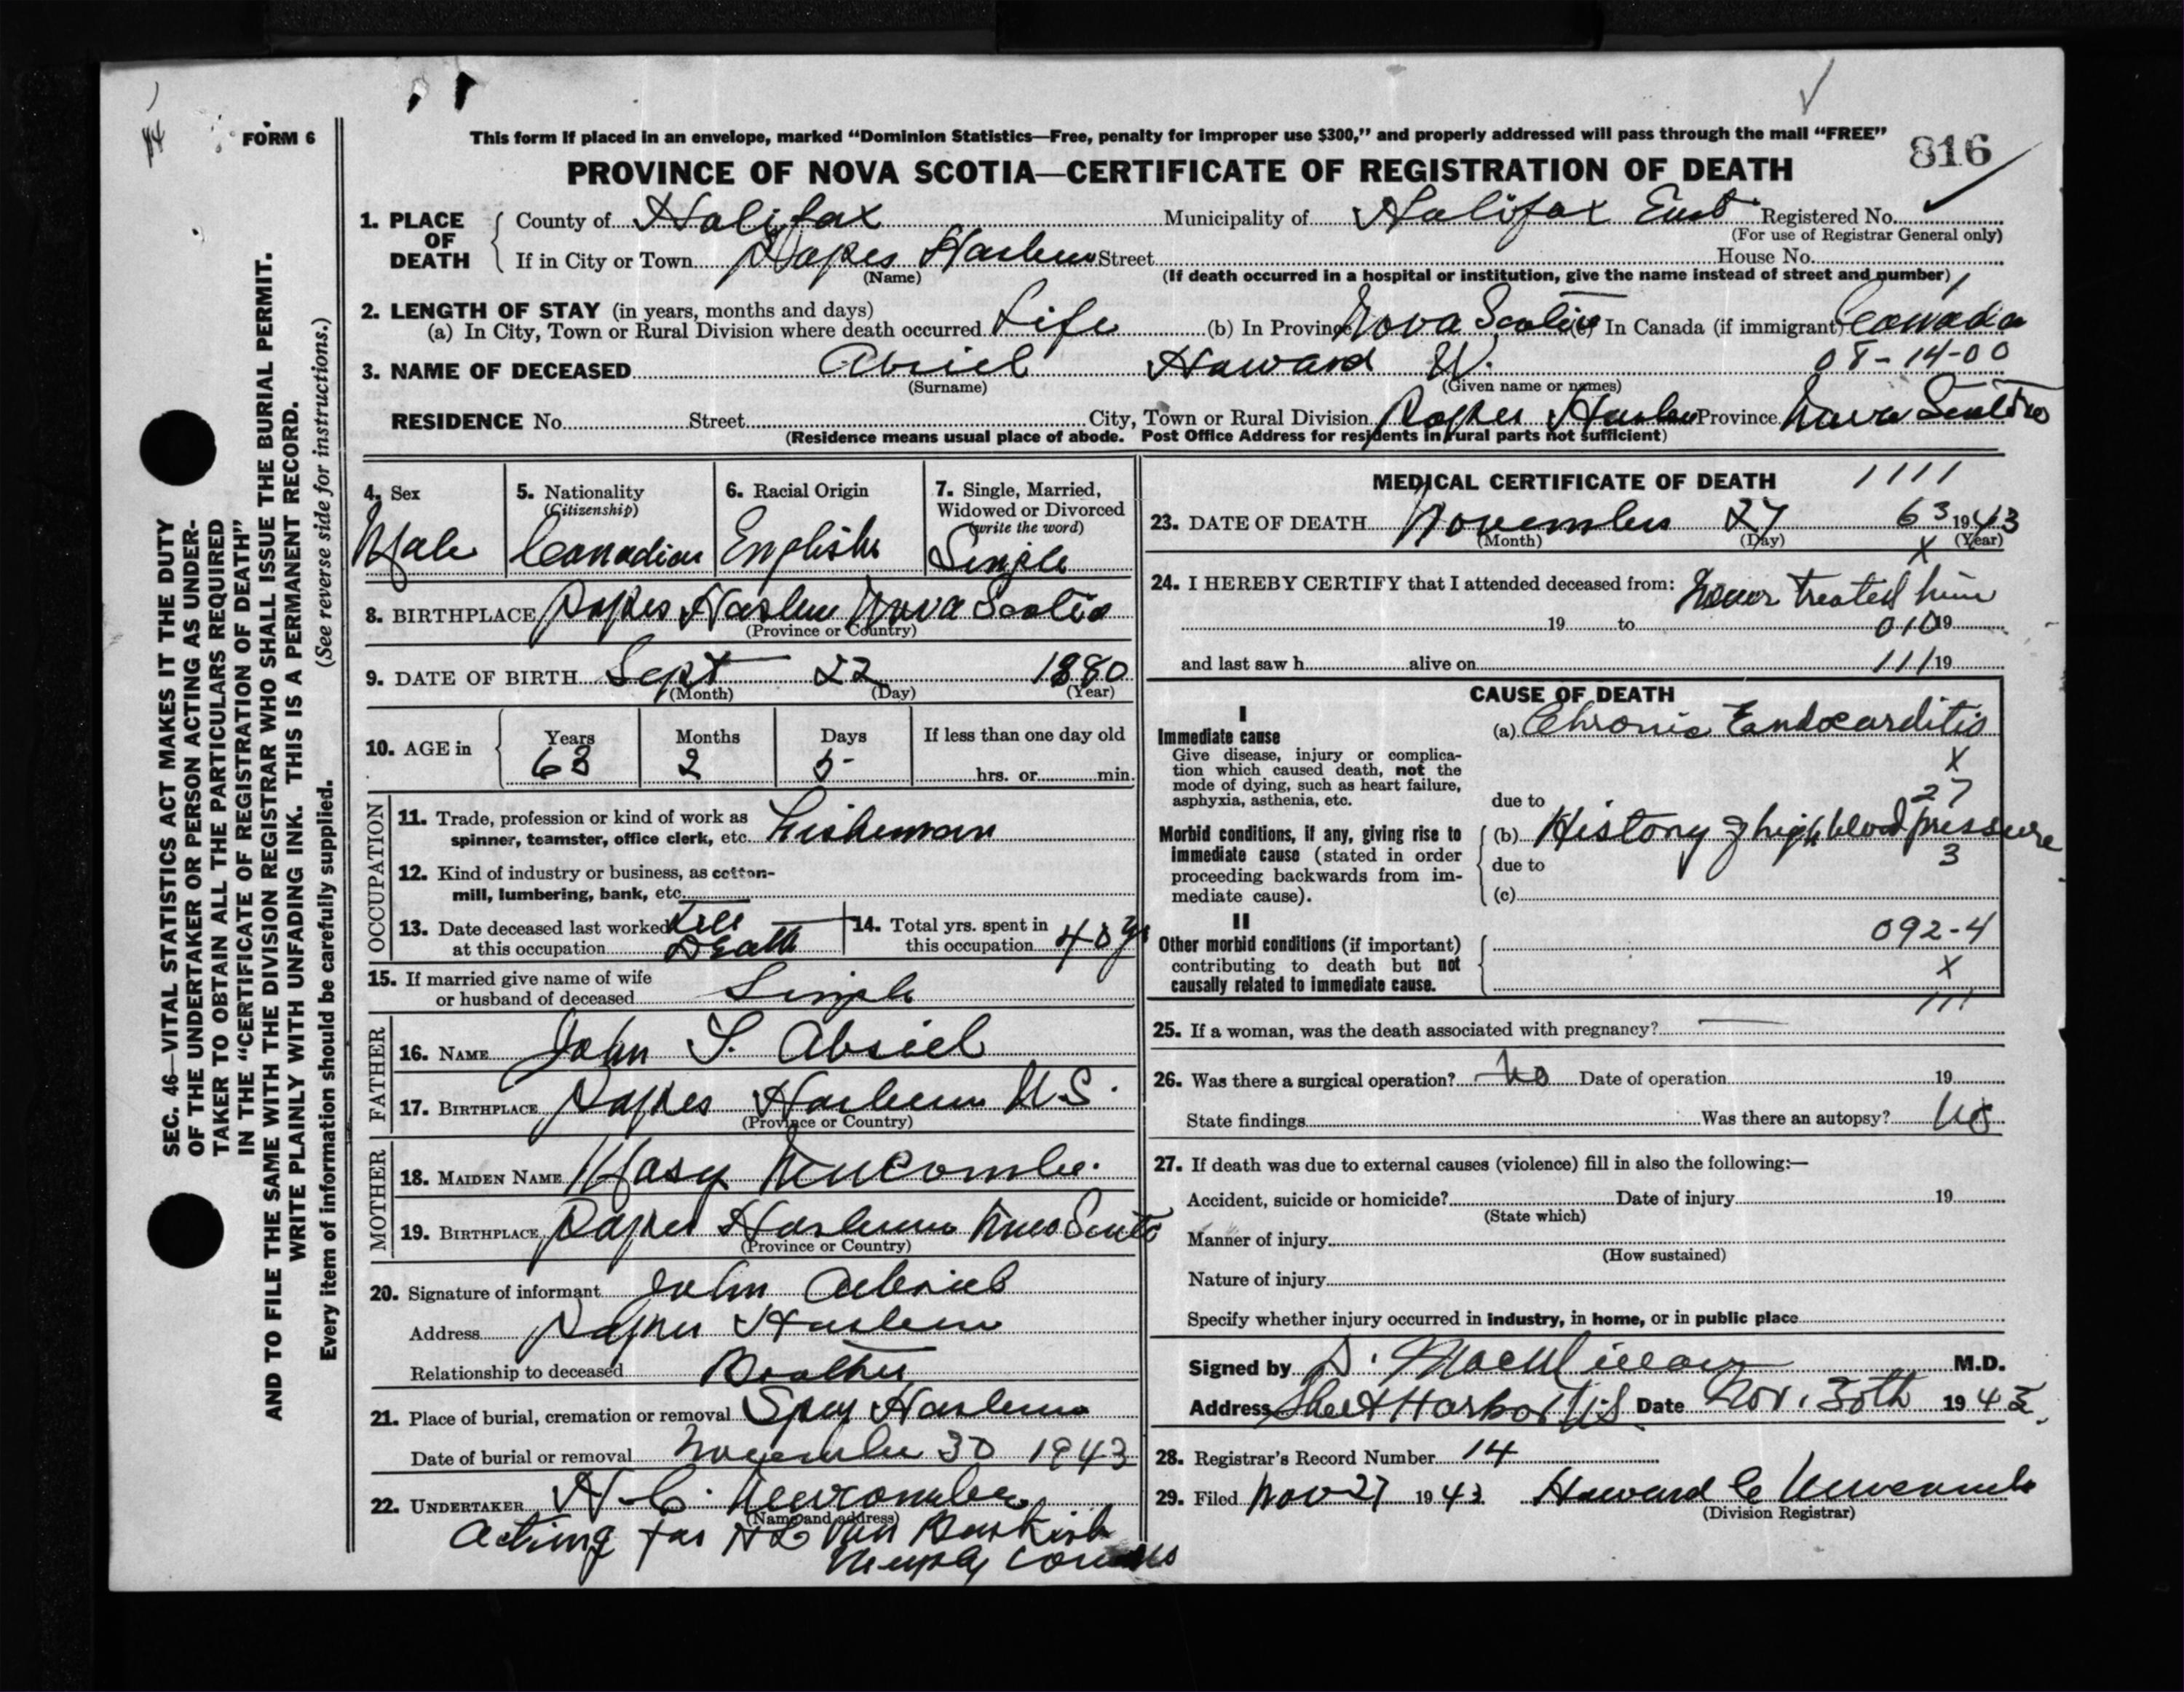 FORM 6
This form if placed in an envelope, marked "Dominion Statistics—Free, penalty for improper use $300," and properly addressed will pass through the mail "FREE"
816
PROVINCE OF NOVA SCOTIA—CERTIFICATE OF REGISTRATION OF DEATH
1. PLACE OF DEATH
County of Halifax Municipality of Halifax East Registered No.
(For use of Registrar General only)
If in City or Town Street House No.
(Name) (If death occurred in a hospital or institution, give the name instead of street and number)
2. LENGTH OF STAY (in years, months and days)
(a) In City, Town or Rural Division where death occurred Life (b) In Province Nova Scotia (c) In Canada (if immigrant) Canada
08-14-00
3. NAME OF DECEASED Abriel Howard W.
(Surname) (Given name or names)
RESIDENCE No. Street City, Town or Rural Division Province Nova Scotia
(Residence means usual place of abode. Post Office Address for residents in rural parts not sufficient)
4. Sex
Male
5. Nationality
(Citizenship)
Canadian
6. Racial Origin
English
7. Single, Married,
Widowed or Divorced
(write the word)
Single
8. BIRTHPLACE Nova Scotia
(Province or Country)
9. DATE OF BIRTH Sept 22 1880
(Month) (Day) (Year)
10. AGE in
Years Months Days If less than one day old
63 2 5 hrs. or min.
OCCUPATION
11. Trade, profession or kind of work as
spinner, teamster, office clerk, etc. Fisherman
12. Kind of industry or business, as cotton-
mill, lumbering, bank, etc.
13. Date deceased last worked Till
at this occupation Death
14. Total yrs. spent in
this occupation 40 yr
15. If married give name of wife
or husband of deceased Single
FATHER
16. NAME John S. Abriel
17. BIRTHPLACE N.S.
(Province or Country)
MOTHER
18. MAIDEN NAME Mary Newcombe
19. BIRTHPLACE Nova Scotia
(Province or Country)
20. Signature of informant John Abriel
Address
Relationship to deceased Brother
21. Place of burial, cremation or removal Spry Harbour
Date of burial or removal November 30 1943
22. UNDERTAKER H. C. Newcombe
(Name and address)
Acting for H L Van Buskirk
MEDICAL CERTIFICATE OF DEATH 1111
23. DATE OF DEATH November 27 63 1943
(Month) (Day) (Year)
X
24. I HEREBY CERTIFY that I attended deceased from: Never treated him
19 to 010 19
and last saw h alive on 111 19
CAUSE OF DEATH
I
Immediate cause
Give disease, injury or complica-
tion which caused death, not the
mode of dying, such as heart failure,
asphyxia, asthenia, etc.
(a) Chronic Endocarditis
X
27
due to
Morbid conditions, if any, giving rise to
immediate cause (stated in order
proceeding backwards from im-
mediate cause).
(b) History of high blood pressure
3
due to
(c)
II
Other morbid conditions (if important)
contributing to death but not
causally related to immediate cause.
092-4
X
111
25. If a woman, was the death associated with pregnancy?
26. Was there a surgical operation? No Date of operation 19
State findings Was there an autopsy? No
27. If death was due to external causes (violence) fill in also the following:—
Accident, suicide or homicide? Date of injury 19
(State which)
Manner of injury
(How sustained)
Nature of injury
Specify whether injury occurred in industry, in home, or in public place
Signed by D. MacMillan M.D.
Address Sheet Harbor N.S Date Nov. 30th 1943.
28. Registrar's Record Number 14
29. Filed Nov 27 1943 Howard C Newcombe
(Division Registrar)
SEC. 46—VITAL STATISTICS ACT MAKES IT THE DUTY
OF THE UNDERTAKER OR PERSON ACTING AS UNDER-
TAKER TO OBTAIN ALL THE PARTICULARS REQUIRED
IN THE "CERTIFICATE OF REGISTRATION OF DEATH"
AND TO FILE THE SAME WITH THE DIVISION REGISTRAR WHO SHALL ISSUE THE BURIAL PERMIT.
WRITE PLAINLY WITH UNFADING INK. THIS IS A PERMANENT RECORD.
Every item of information should be carefully supplied. (See reverse side for instructions.)